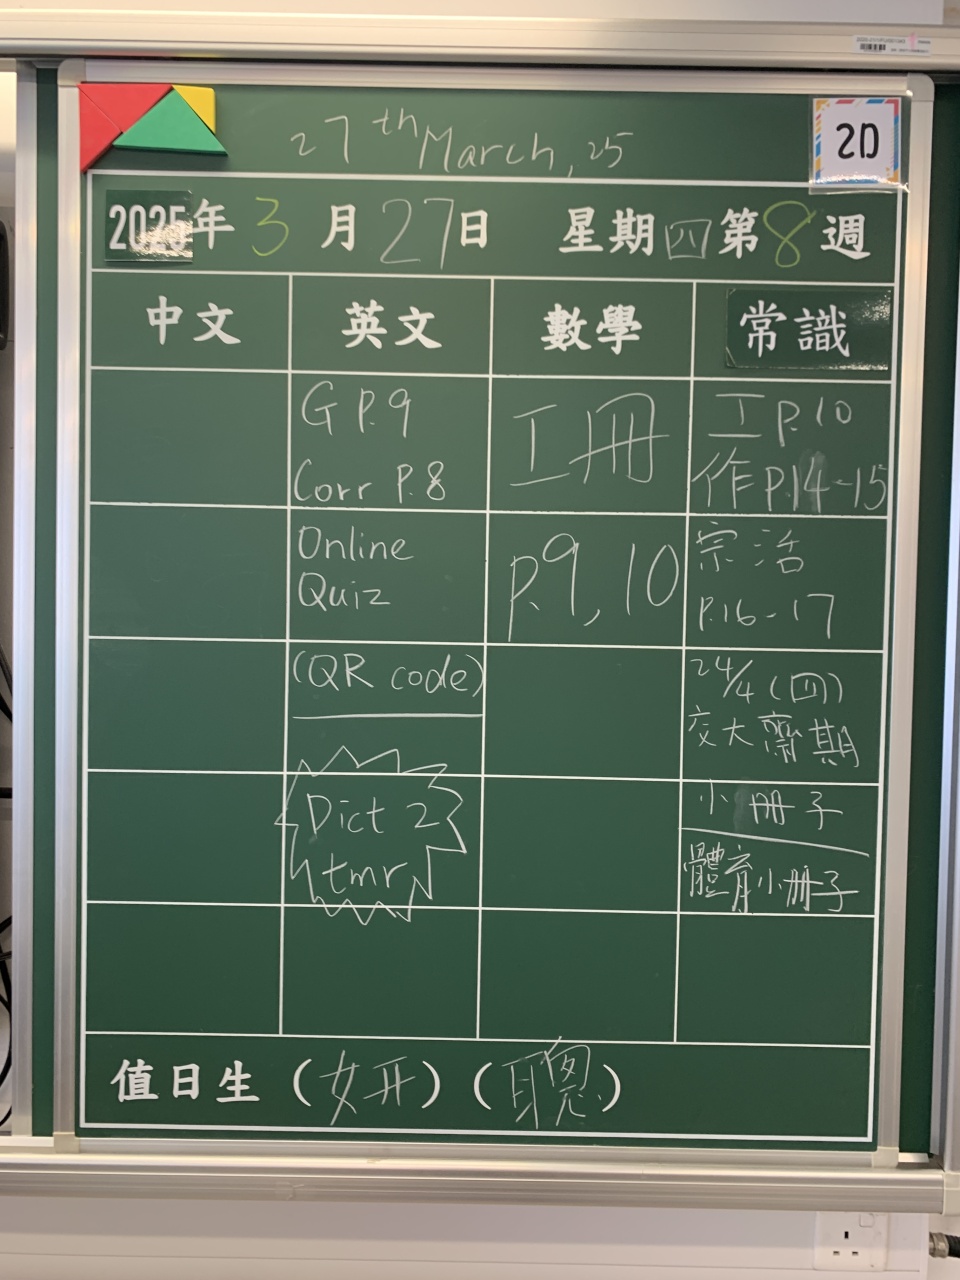 27th March, 25
2D
2025年3月27日 星期四第8週
中文 英文 數學 常識
G P.9
Corr P.8
工冊
工 p.10
作 P.14-15
Online
Quiz
p.9, 10
宗活
p.16-17
(QR code)
24/4 (四)
交大齋期
Dict 2
tmr
小冊子
體育小冊子
值日生 (妍) (聰)